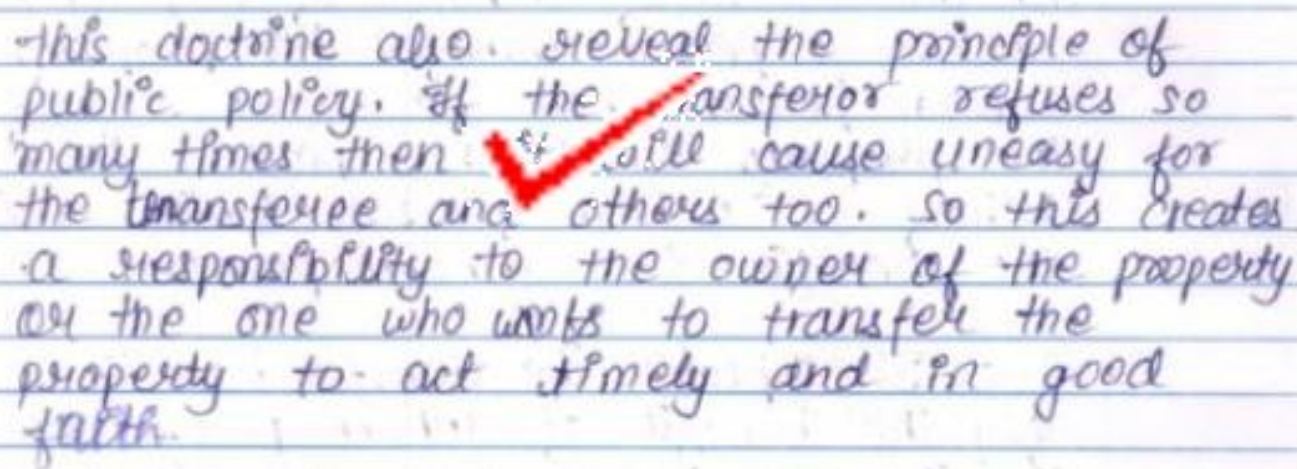 this doctrine also. reveal the principle of
public policy. If the ansferor refuses so
many times then it will cause uneasy for
the transferee and others too. so this creates
a responsibility to the owner of the property
or the one who wants to transfer the
property to act timely and in good
faith.